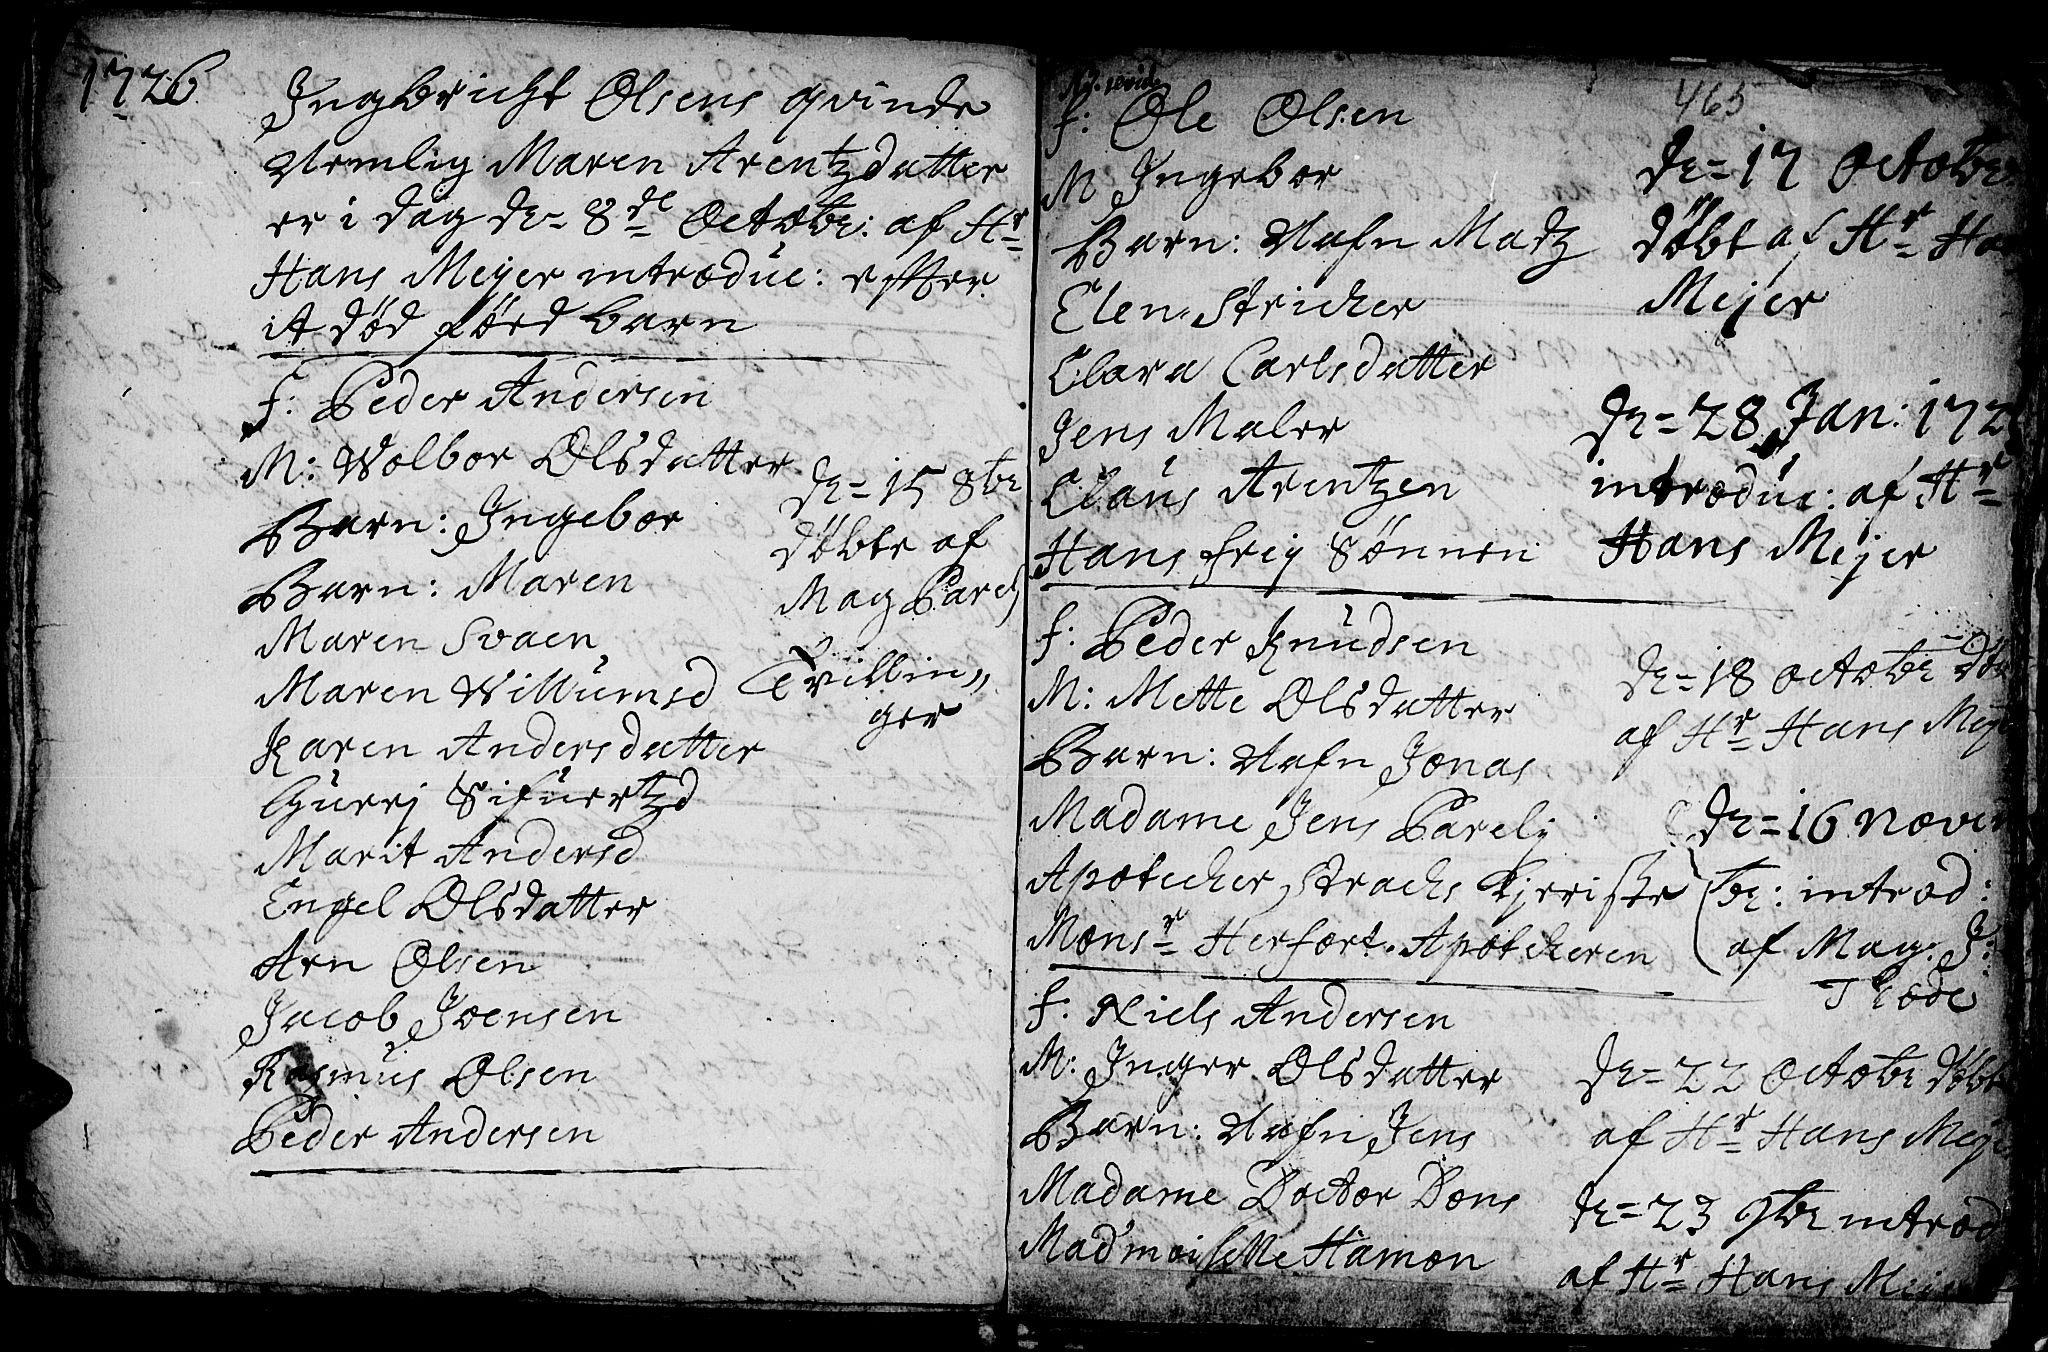 1726
Ingbricht Olsens qvinde
Nemlig Maren Arentzdatter
er i dag dn= 8de Octobr: af Hr
Hans Mejer introduc: efter
it död förd barn
F: Peder Andersen
M: Wolbor Olsdatter
Barn: Ingebor
Barn: Maren
Maren Svaen
Maren Willumsd
Karen Andersdatter
Gurrj Sifuertzd
Marit Andersd
Engel Olsdatter
Arn Olsen
Jacob Joensen
Rasmus Olsen
Peder Andersen
dn= 15 8br
döbte af
Mag Parelj
Tvillin„
ger
465
f: Ole Olsen
M Ingebor
Barn: Nafn Madz
Elen Stricker
Clara Carlsdatter
Jens Maler
Claus Arentzen
Hans frij Sönnen
dn= 17 Octobr
döbt af Hr
Mejer
dn= 28 Jan:
introduc: af Hr
Hans Mejer
f: Peder Knudsen
M: Mette Olsdatter
Barn: Nafn Jonas
Madame Jens Parelj
Apoticher Strachs Kjeriste
Monsr Herfort Apotickeren
dn= 18 Octobr
af Hr Hans
dn= 16
br: introd:
af Mag: J:
Thode
f: Niels Andersen
M: Inger Olsdatter
Barn: Nafn Jens
Madame Doctor Dons
Mad'moiselle Hamon
dn= 22 Octobr döbt
af Hr Hans Meje
dn= 23 9br introd
af Hr Hans Mejer